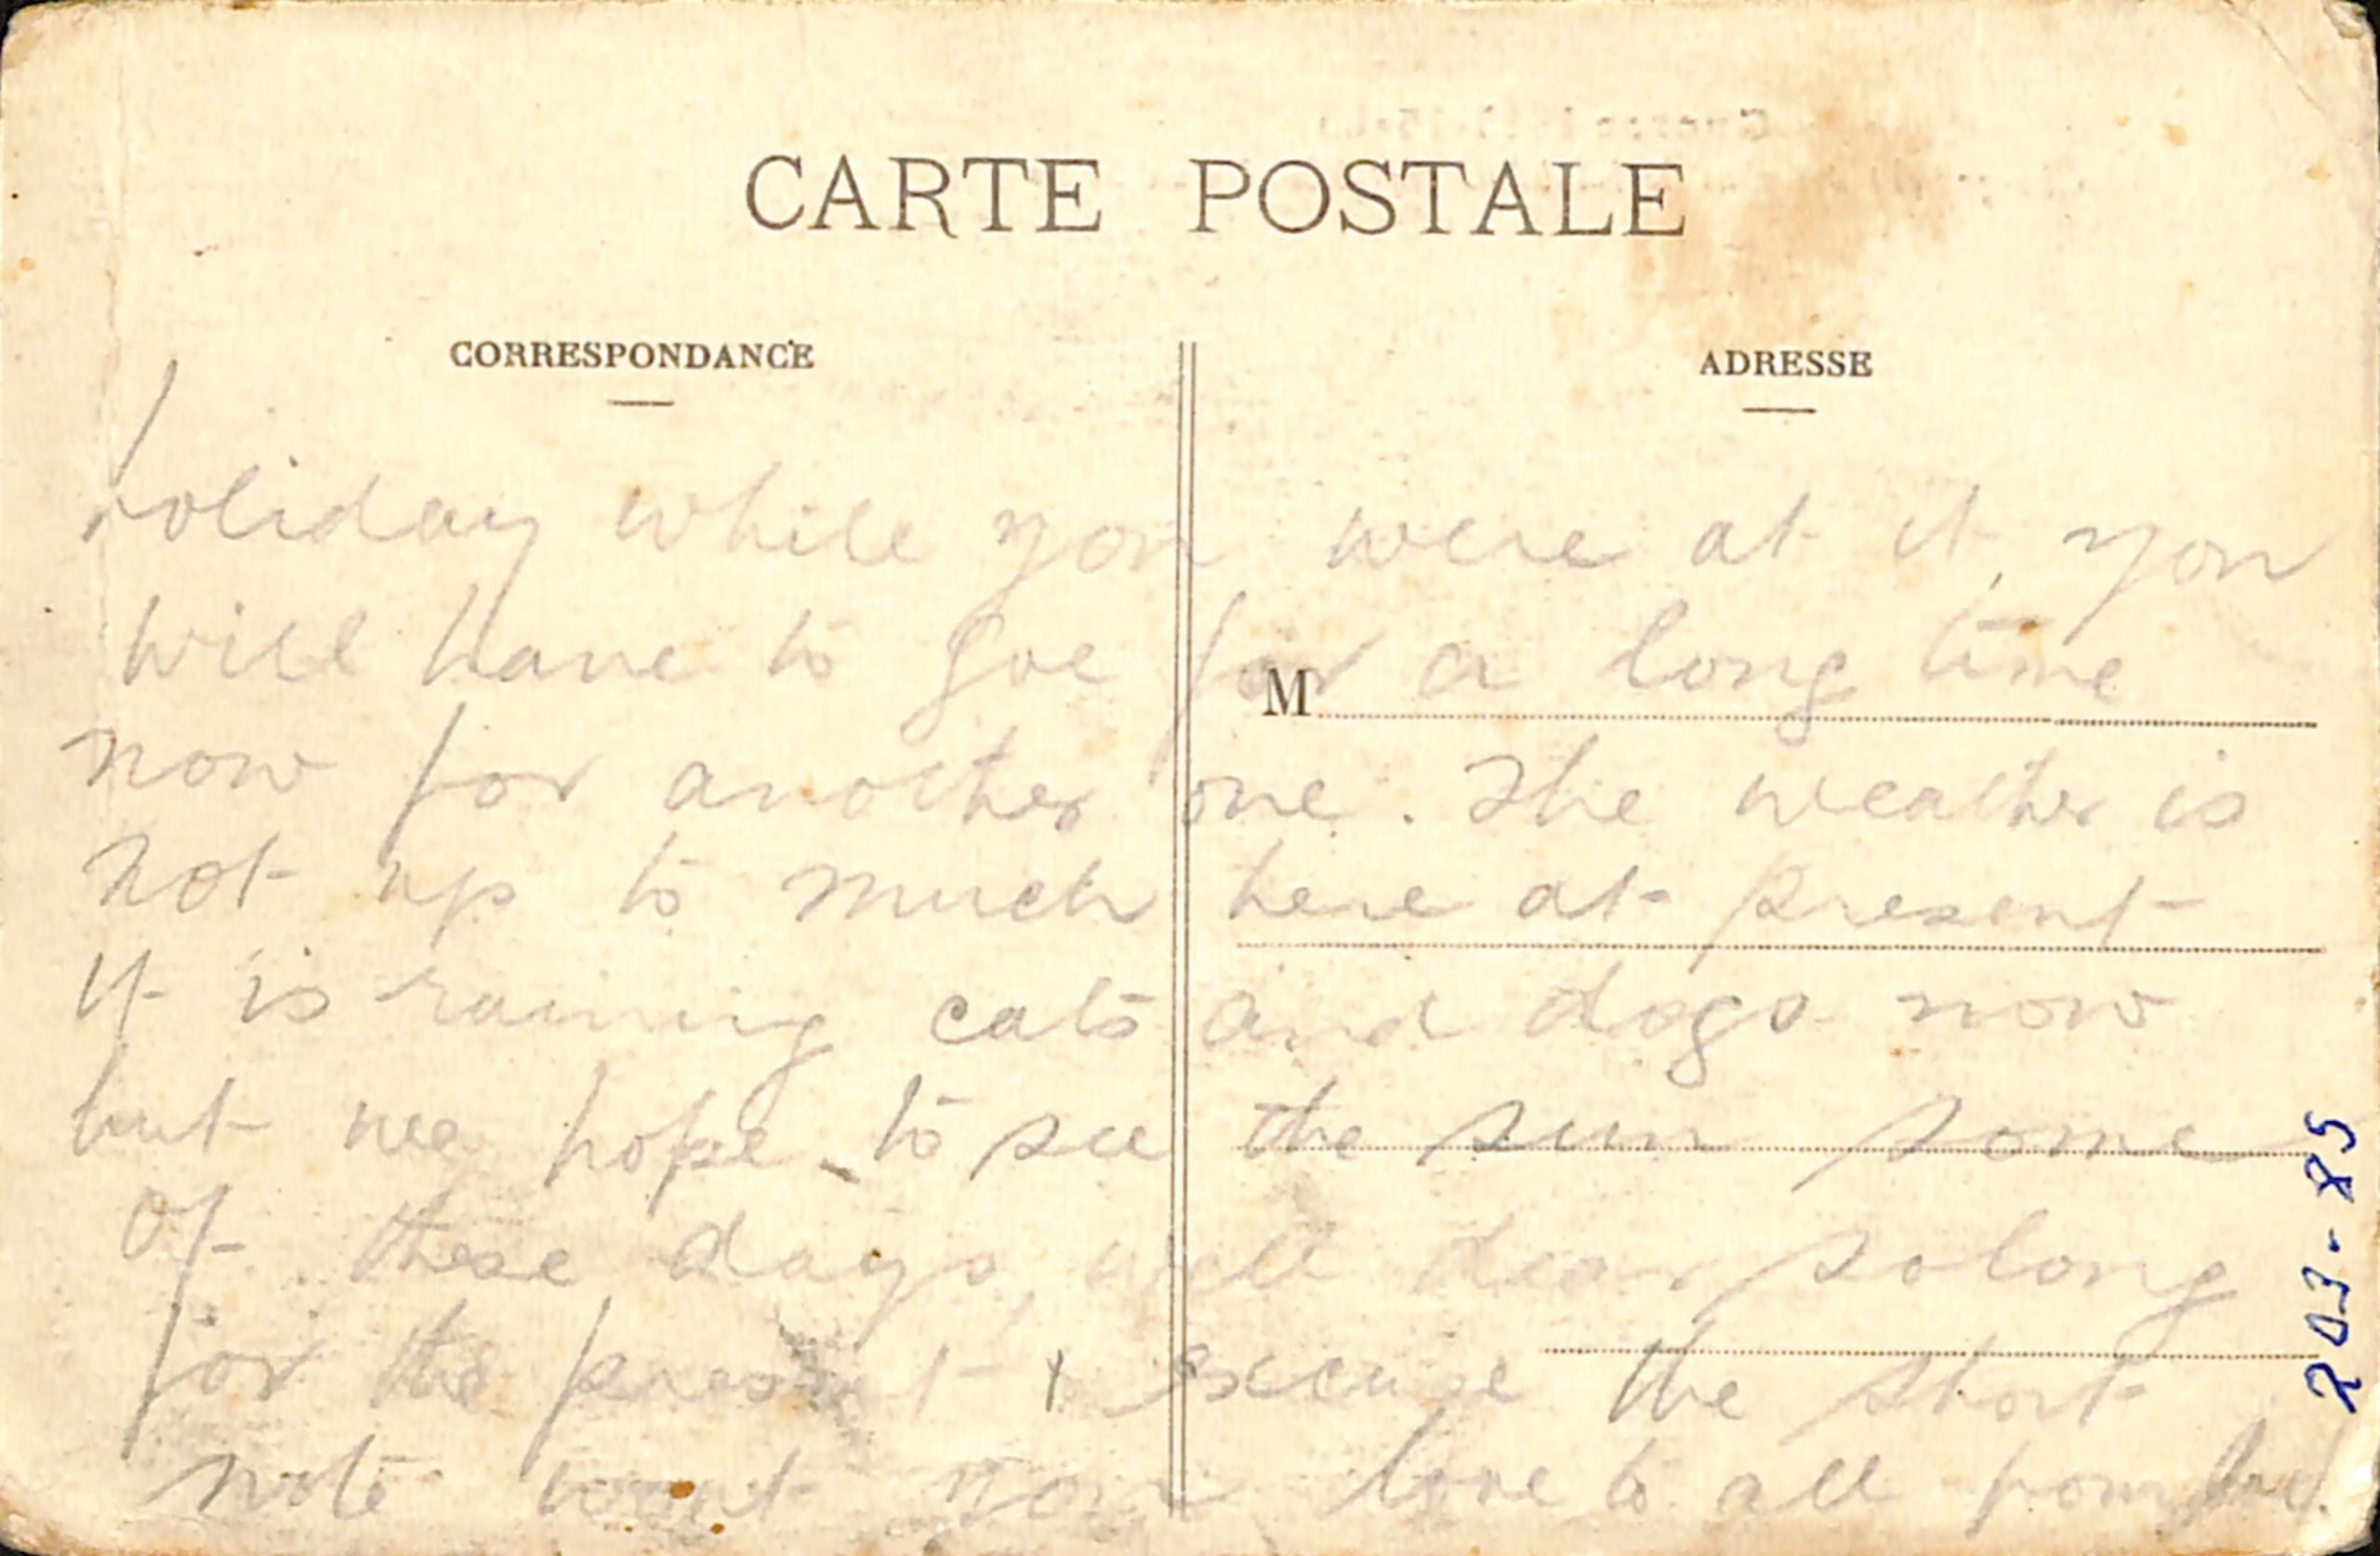 CARTE POSTALE
CORRESPONDANCE
ADRESSE
holiday while you were at it, you
will have to goe for a long time
M
now for another one. The weather is
not up to much here at present
it is raining cats and dogs now
but we hope to see the sun some
of these days, well dear so long
for the present & excuse the short
note wont you love to all from
203-85